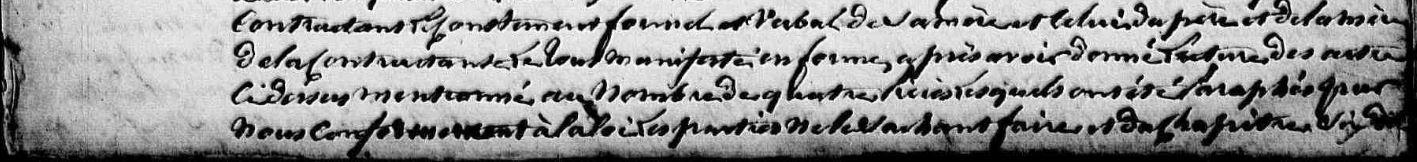 contractant le consentement formel et verbal de sa mère et celui du père et de la mère
de la contractante le tout manifesté en forme, après avoir donné lecture des actes
ci dessus mentionné au nombre de quatre pièces lesquels ont été paraphés par
nous conformement à la loi les parties ne le sachant faire et du chapitre six du